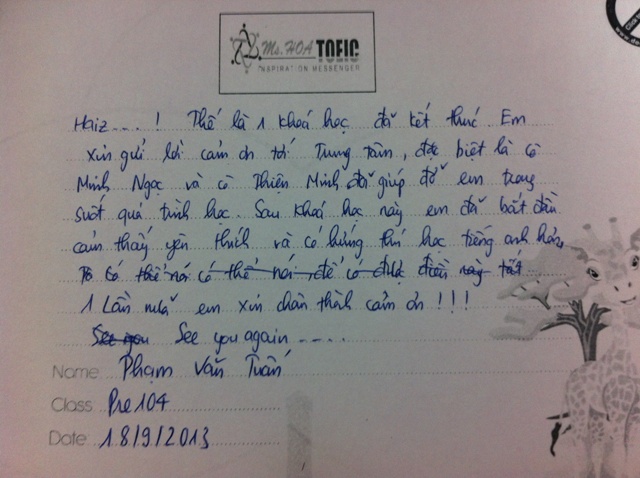 Ms. HOA TOEIC
INSPIRATION MESSENGER
Haiz....! Thế là 1 khoá học đã kết thúc. Em
xin gửi lời cảm ơn tới Trung Tâm, đặc biệt là cô
Minh Ngọc và cô Thiện Minh đã giúp đỡ em trong
suốt quá trình học. Sau khoá học này em đã bắt đầu
cảm thấy yêu thích và có hứng thú học tiếng anh hơn,
có thể nói có thể nói, để có được điều này tất
1 Lần nữa em xin chân thành cảm ơn !!!
See you See you again.....
Name Phạm Văn Tuấn
Class Pre 104
Date 18/9/2013